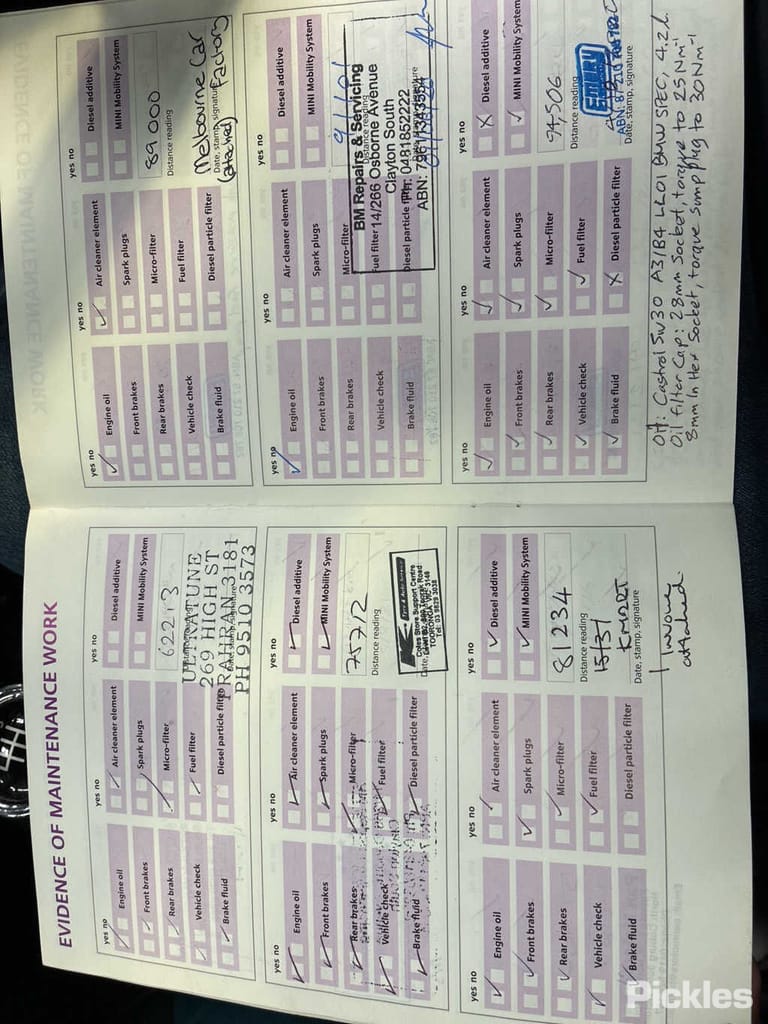 EVIDENCE OF MAINTENANCE WORK
yes no
Engine oil
Front brakes
Rear brakes
Vehicle check
Brake fluid
yes no
Air cleaner element
Spark plugs
Micro-filter
Fuel filter
Diesel particle filter
yes no
Diesel additive
MINI Mobility System
62213
ULTRATUNE
269 HIGH ST
PRAHRAN 3181
PH 9510 3573
yes no
Engine oil
Front brakes
Rear brakes
Vehicle check
Brake fluid
yes no
Air cleaner element
Spark plugs
Micro-filter
Fuel filter
Diesel particle filter
yes no
Diesel additive
MINI Mobility System
75712
Distance reading
Coles Store Support Centre
TOORONGA VIC 3146
Tel: 03 9829 3038
yes no
Engine oil
Front brakes
Rear brakes
Vehicle check
Brake fluid
yes no
Air cleaner element
Spark plugs
Micro-filter
Fuel filter
Diesel particle filter
yes no
Diesel additive
MINI Mobility System
81234
Distance reading
15/31
KMART
Date, stamp, signature
Invoice
attached.
yes no
Engine oil
Front brakes
Rear brakes
Vehicle check
Brake fluid
yes no
Air cleaner element
Spark plugs
Micro-filter
Fuel filter
Diesel particle filter
yes no
Diesel additive
MINI Mobility System
89000
Distance reading
Melbourne Car
Date, stamp, signature
(attached) Factory
yes no
Engine oil
Front brakes
Rear brakes
Vehicle check
Brake fluid
yes no
Air cleaner element
Spark plugs
Micro-filter
Fuel filter
Diesel particle filter
yes no
Diesel additive
MINI Mobility System
BM Repairs & Servicing
14/266 Osborne Avenue
Clayton South
PH: 0481852222
yes no
Engine oil
Front brakes
Rear brakes
Vehicle check
Brake fluid
yes no
Air cleaner element
Spark plugs
Micro-filter
Fuel filter
Diesel particle filter
yes no
Diesel additive
MINI Mobility System
94,506
Distance reading
Date, stamp, signature
Oil: Castrol 5W30 A3/B4 LL01 BMW SPEC, 4.2L
Oil Filter Cap: 28mm Socket, torque to 25Nm⁻¹
8mm In Hex Socket, torque sump plug to 30Nm⁻¹
Pickles